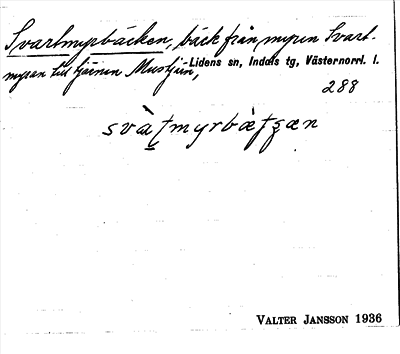 Svartmyrbäcken, bäck från myren Svart-
myran till tjärnen Mustjärn,
Lidens sn, Indals tg, Västernorrl. l.
288
Valter Jansson 1936